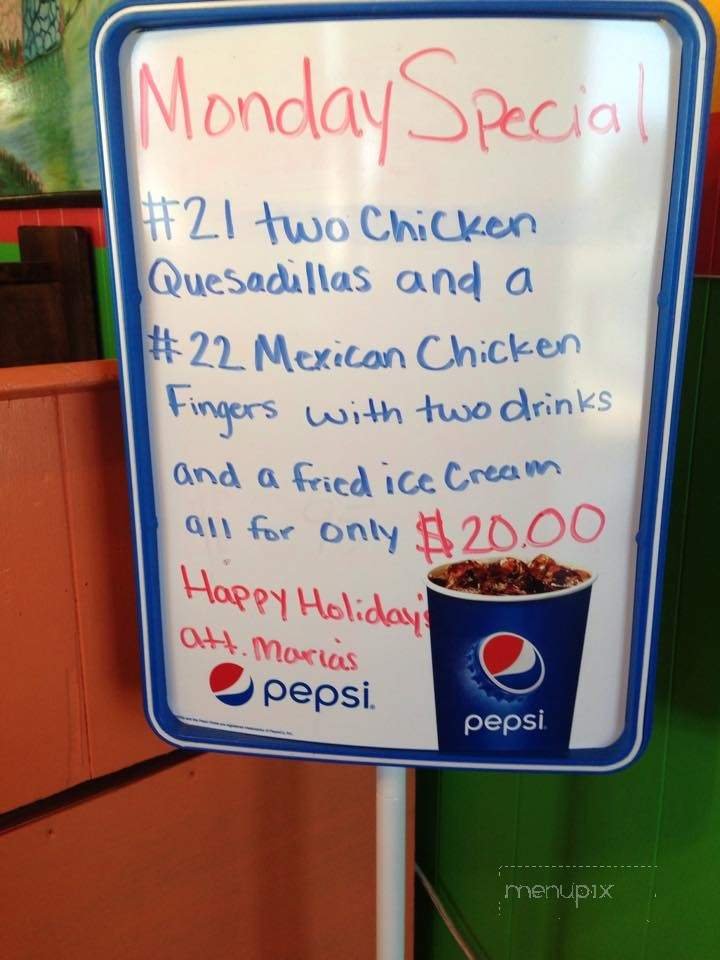 Monday Special
#21 two Chicken
Quesadillas and a
#22 Mexican Chicken
Fingers with two drinks
and a fried ice Cream
all for only $20.00
Happy Holiday's
att. Marias
pepsi
pepsi
menupix